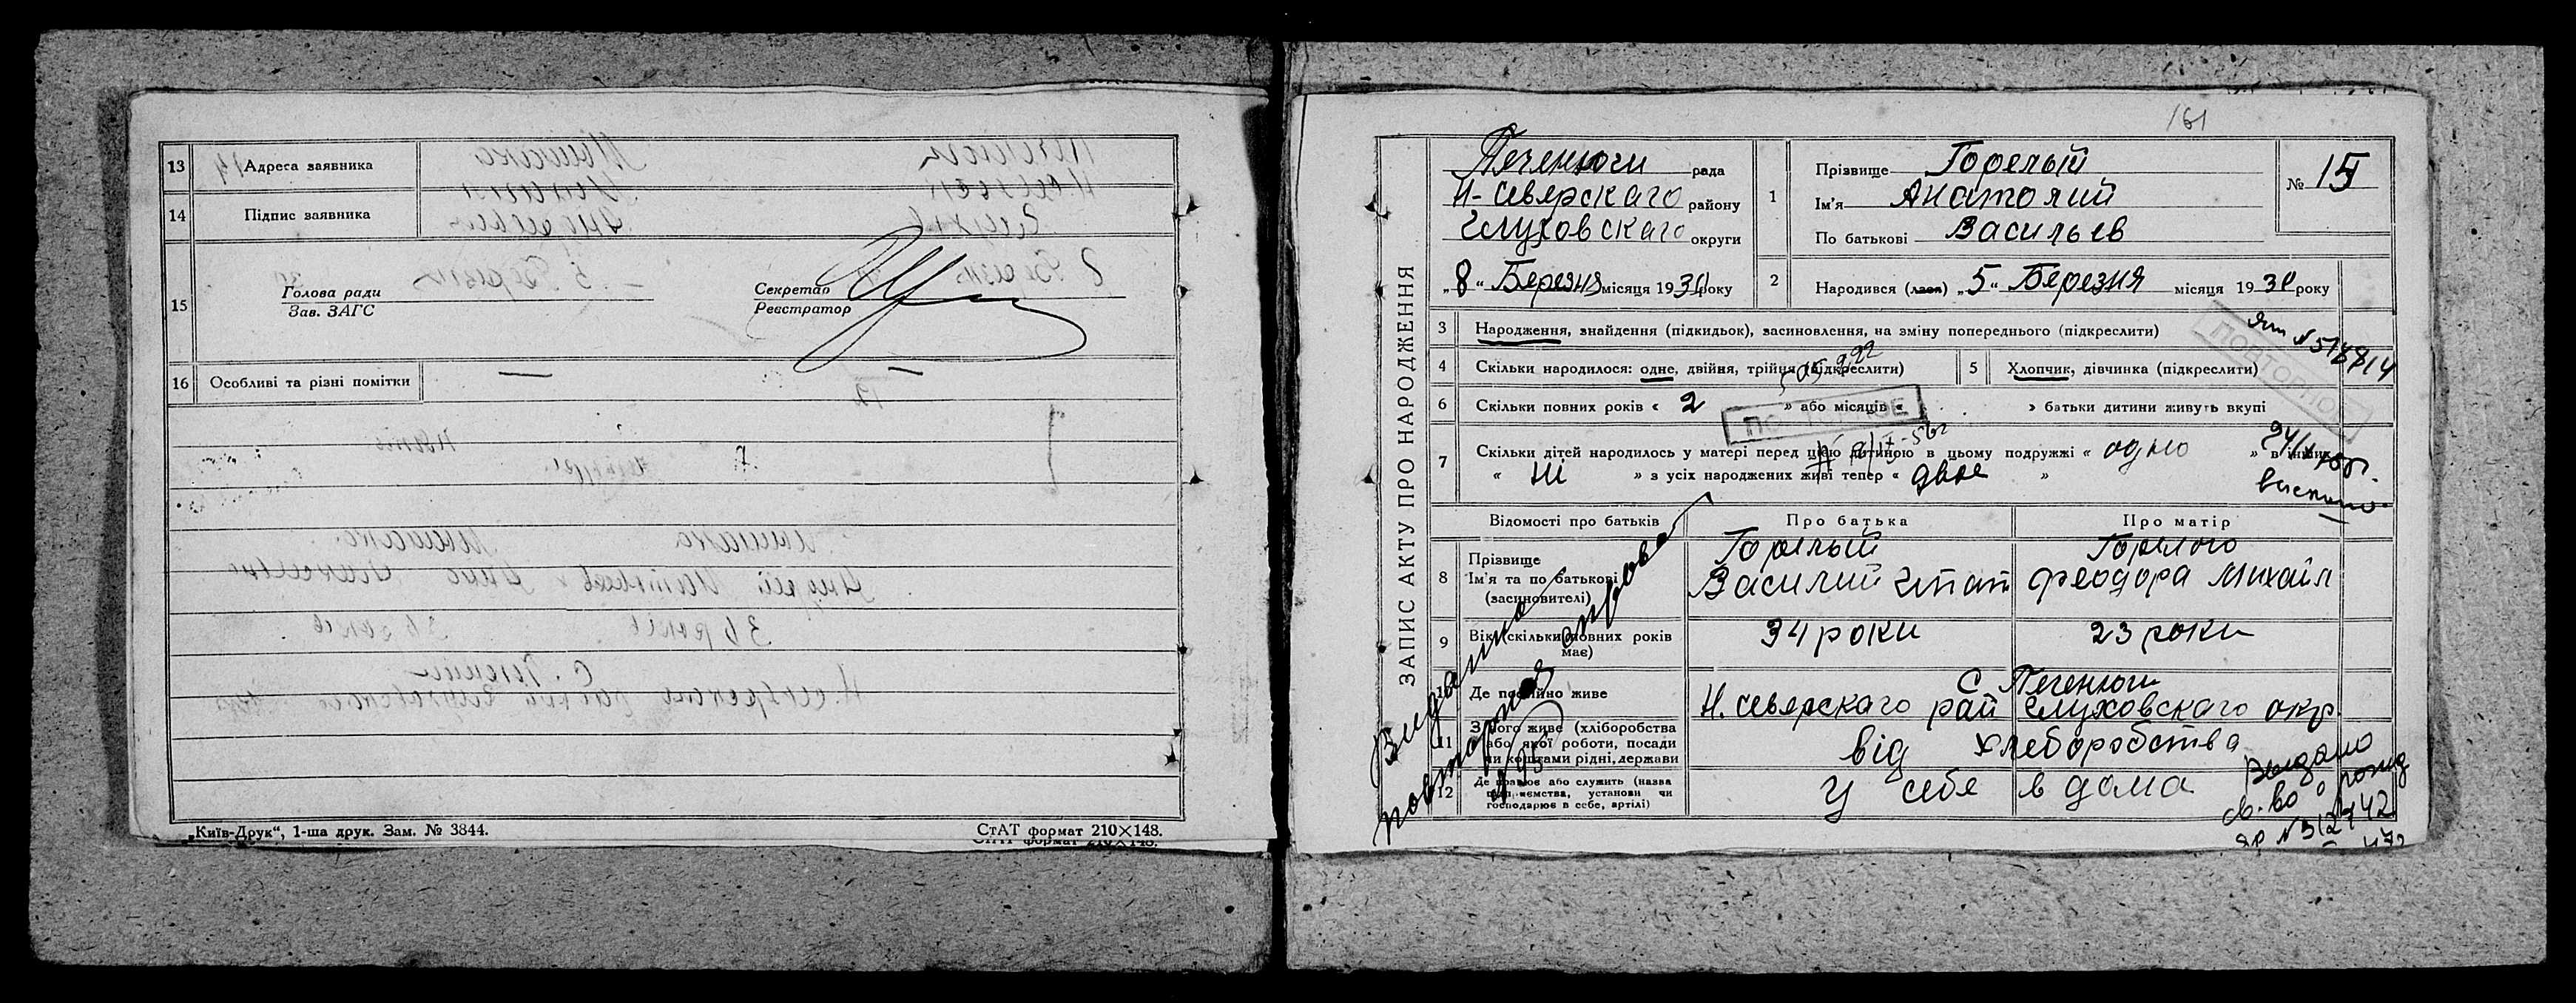 13 Адреса заявника
14 Підпис заявника
15 Голова ради
Зав. ЗАГС
Секретар
Реєстратор
16 Особливі та різні помітки — —
„Київ-Друк“, 1-ша друк. Зам. № 3844.
СтАТ формат 210×148.
СтАТ формат 210×148.
161
ЗАПИС АКТУ ПРО НАРОДЖЕННЯ
Печенюги рада
Н-Северскаго району
Глуховскаго округи
„8“ Березня місяця 1930 року
1 Прізвище Горелый
Ім'я Анатолий
По батькові Васильев
№ 15
2 Народився (лась) „5“ Березня місяця 1930 року
3 Народження, знайдення (підкидьок), засиновлення, на зміну попереднього (підкреслити)
4 Скільки народилося: одне, двійня, трійня (підкреслити)
5 Хлопчик, дівчинка (підкреслити)
6 Скільки повних років « 2 » або місяців « » батьки дитини живуть вкупі
ПОВТОРНОЕ
7 Скільки дітей народилось у матері перед цією дитиною в цьому подружжі « одно » в інших
« ні » з усіх народжених живі тепер « двое »
Відомості про батьків Про батька Про матір
8 Прізвище
Ім'я та по батькові
(засиновителі)
Горелый
Василий Игнат
Горелого
Феодора Михайл
9 Вік (скільки повних років
має)
34 роки 23 роки
10 Де постійно живе
с Печенюги
Н. Северскаго рай Глуховскаго окр.
11 З чого живе (хліборобства
або якої роботи, посади
чи коштами рідні, держави
від хлеборобства
12 Де працює або служить (назва
підприємства, установи чи
господарює в себе, артілі)
у себе в дома
повторная
Выдано
св-во о рожд